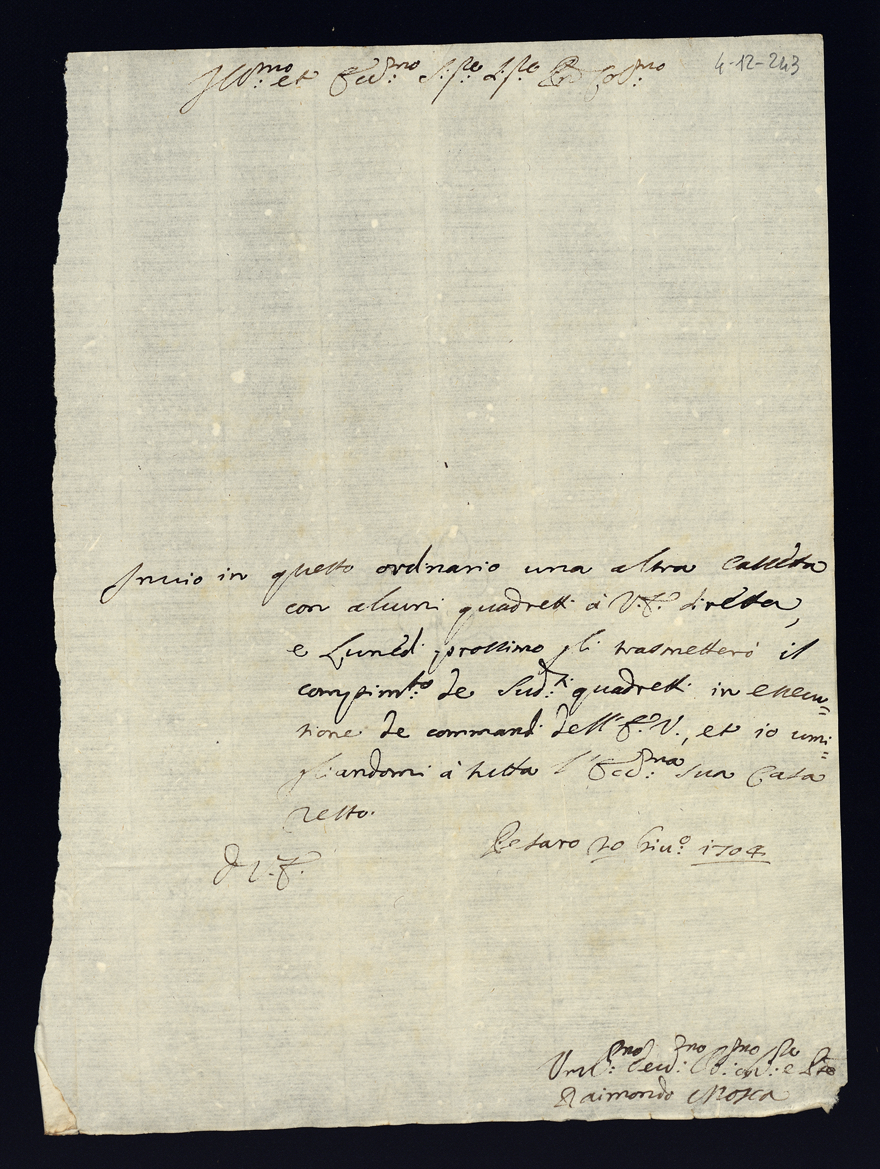 4-12-243
Ill:mo et Ecc:mo S:re S:re P Col:mo
Invio in questo ordinario una altra cassetta
con alcuni quadretti à V.E. diretta,
e Lunedi prossimo gli trasmetterò il
compim:to de Sud:ti quadretti in essecu=
tione de commandi dell'E.V., et io umi=
gliandomi à tutta l'Ecc:ma Sua Casa
resto.
Pesaro 20 Giu:o 1704
D V.E.
Um:mo Dev:mo Ob:mo
Raimondo Mosca